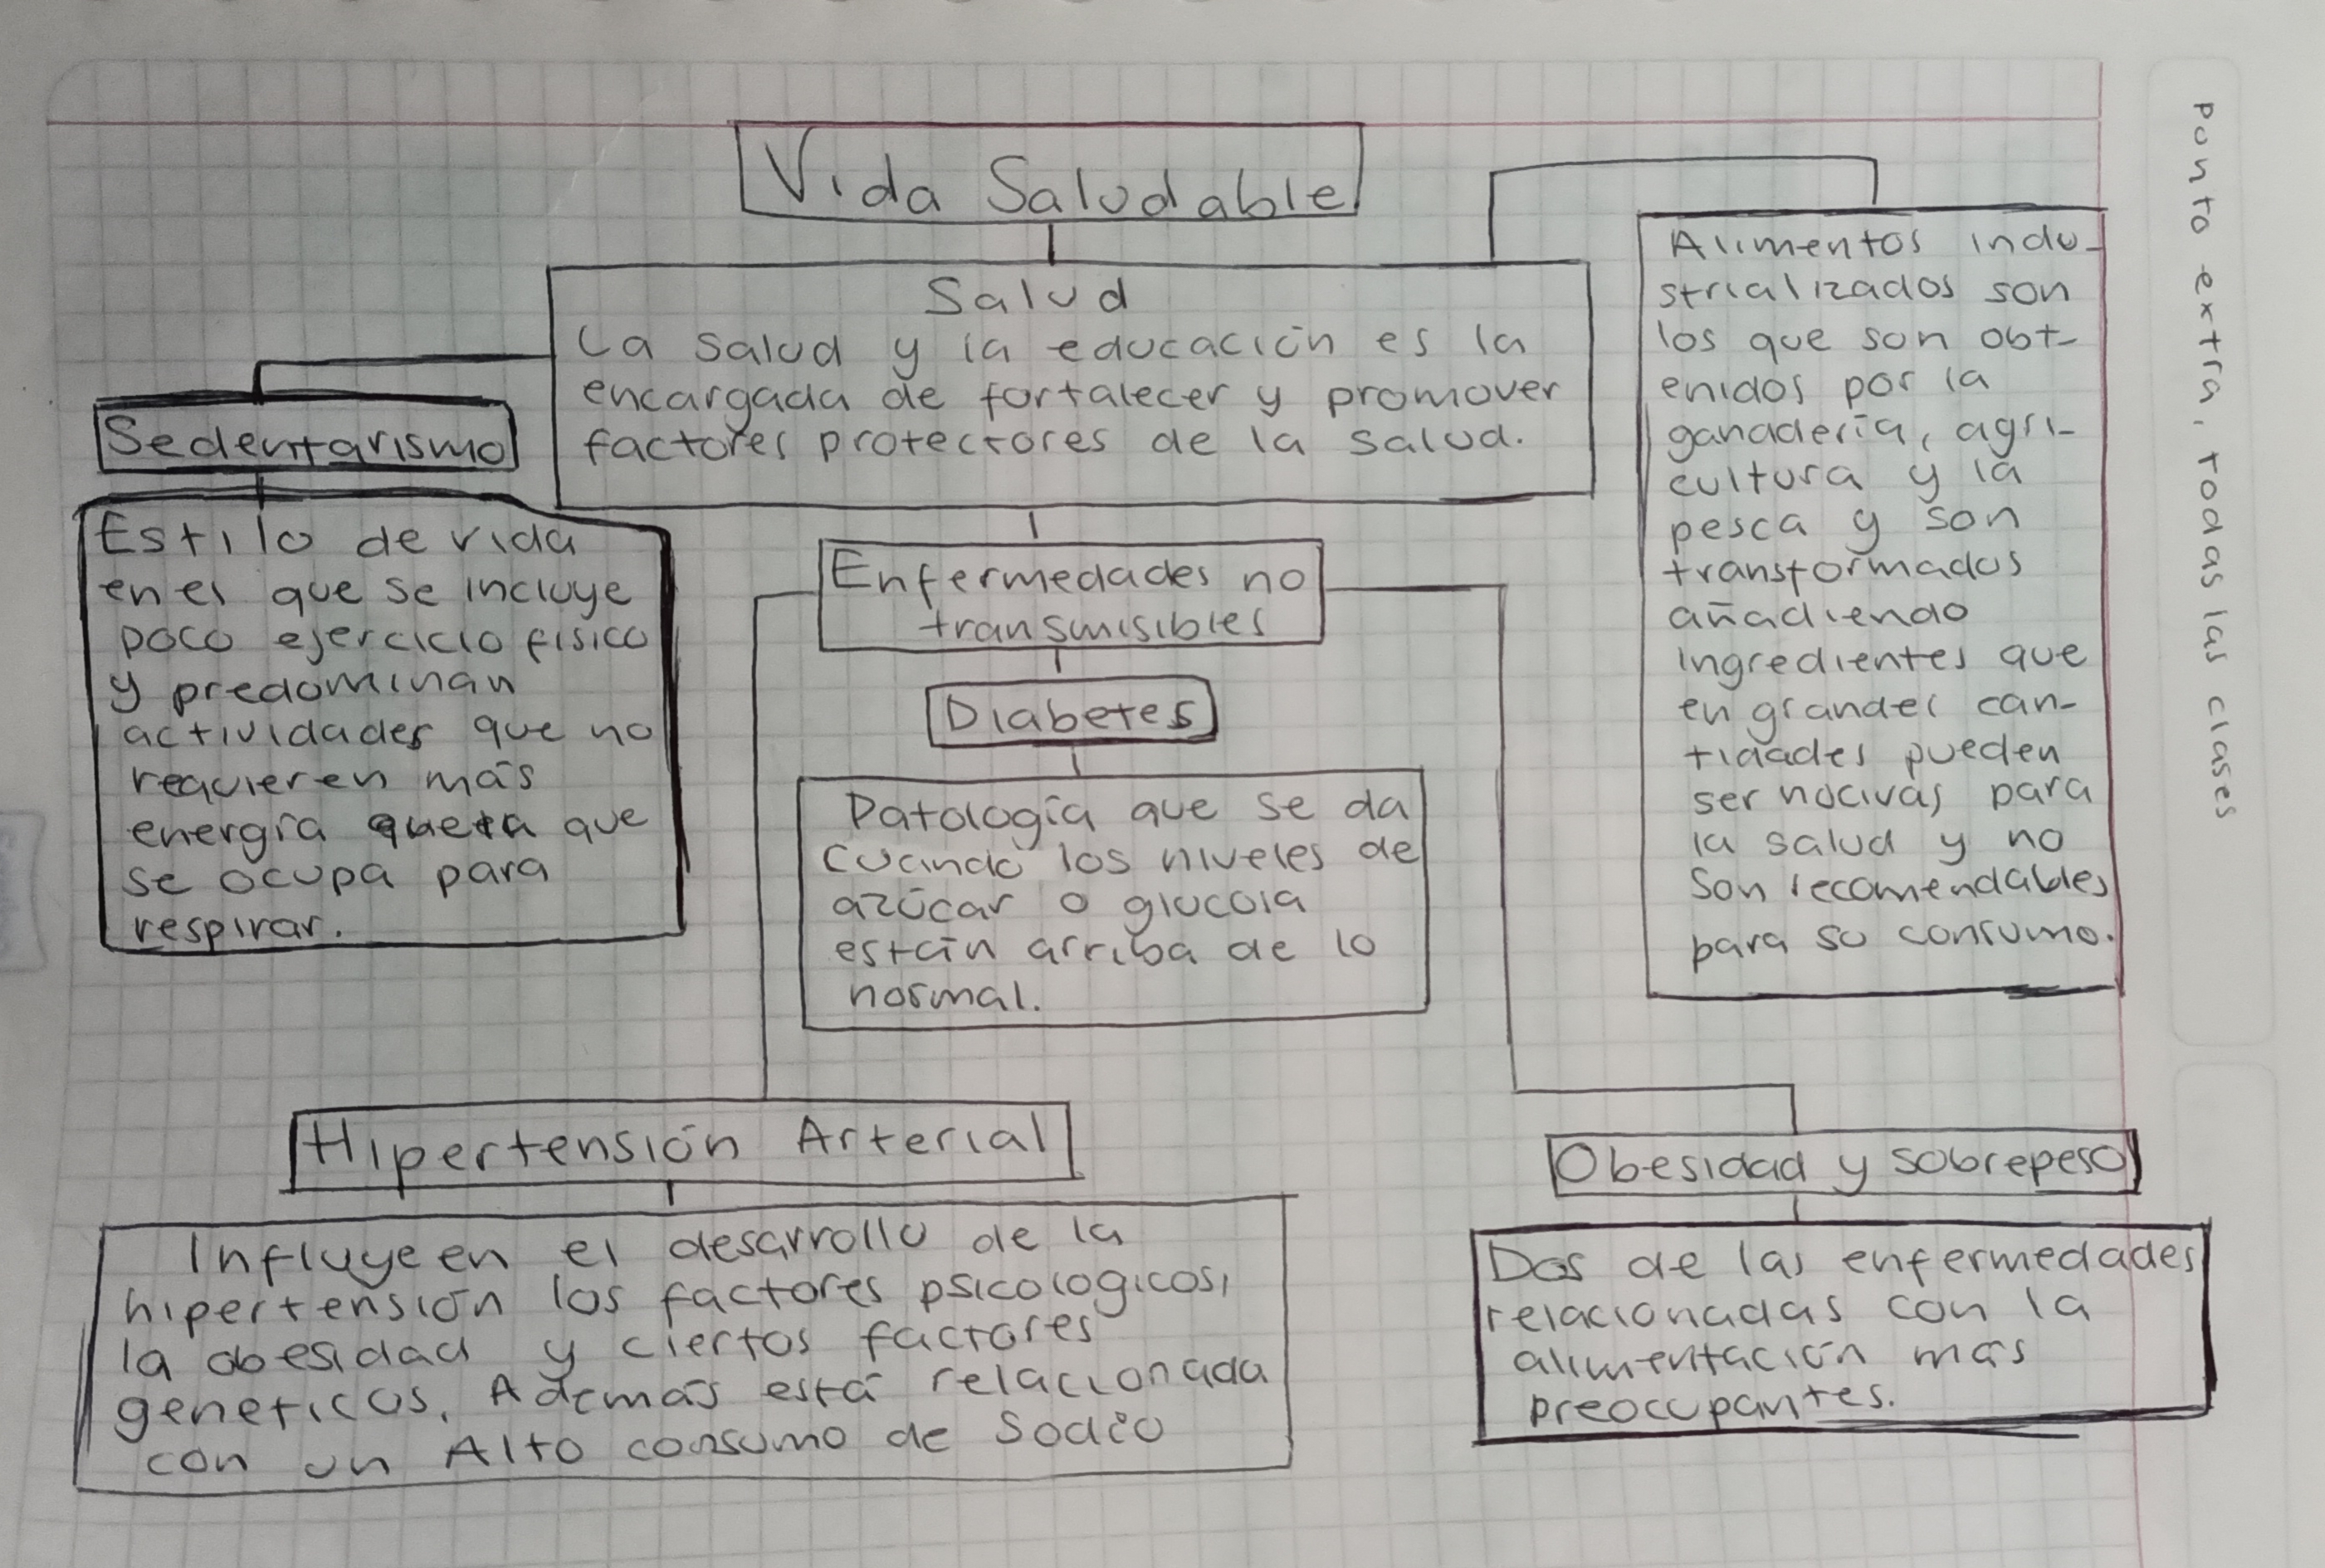 Vida Saludable
Salud
La salud y la educación es la
encargada de fortalecer y promover
factores protectores de la salud.
Sedentarismo
Estilo de vida
en el que se incluye
poco ejercicio físico
y predominan
actividades que no
requieren más
energía que
se ocupa para
respirar.
Enfermedades no
transmisibles
Diabetes
Patología que se da
cuando los niveles de
azúcar o glucosa
están arriba de lo
normal.
Alimentos indu-
strializados son
los que son obt-
enidos por la
ganadería, agri-
cultura y la
pesca y son
transformados
añadiendo
ingredientes que
en grandes can-
tidades pueden
ser nocivas para
la salud y no
son recomendables
para su consumo.
Hipertensión Arterial
Influye en el desarrollo de la
hipertensión los factores psicologicos,
la obesidad y ciertos factores
geneticos. Además está relacionada
con un Alto consumo de Sodio
Obesidad y sobrepeso
Dos de las enfermedades
relacionadas con la
alimentación más
preocupantes.
Punto extra, todas las clases